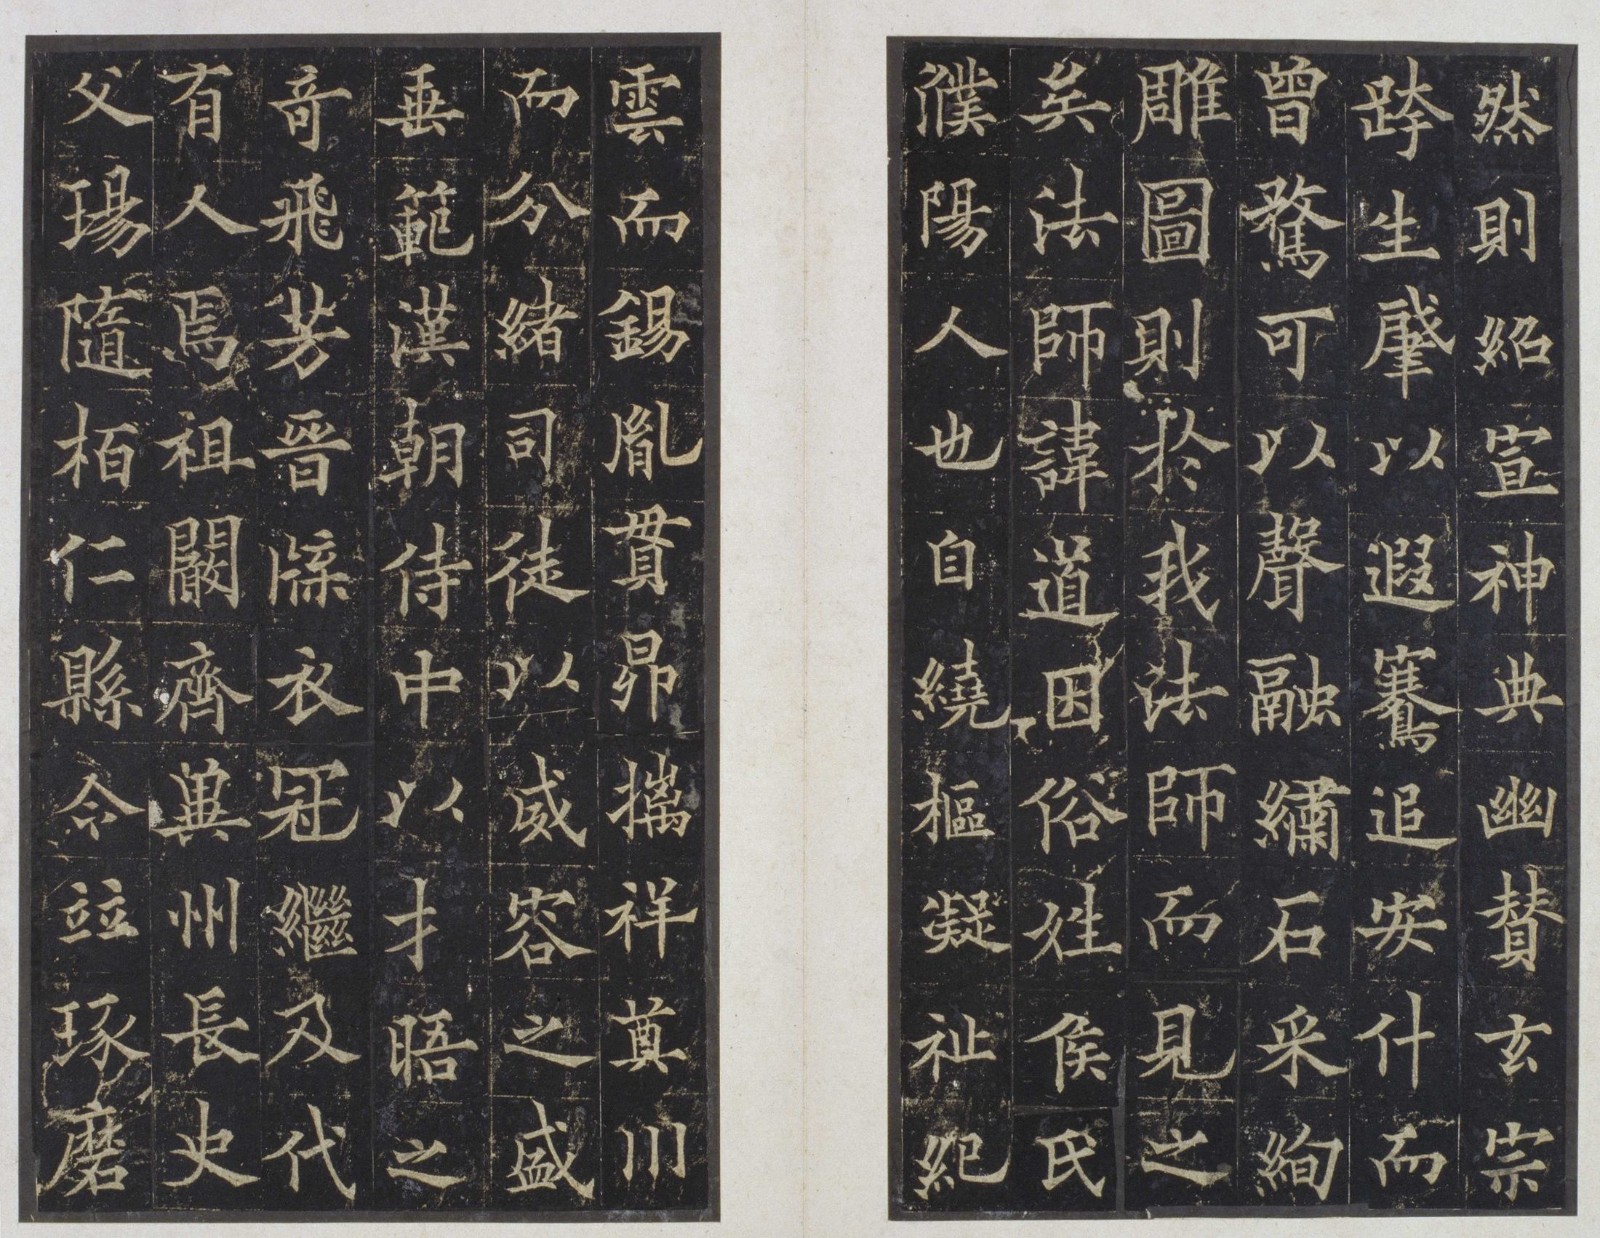 然則紹宣神典幽賛玄宗
跨生肇以遐騫追安什而
曾騖可以聲融繡石采絢
雕圖則於我法師而見之
矣法師諱道因俗姓侯氏
濮陽人也自繞樞凝祉紀
雲而錫胤貫昴摛祥奠川
而分緒司徒以威容之盛
垂範漢朝侍中以才晤之
奇飛芳晉牒衣冠繼及代
有人焉祖闞齊冀州長史
父瑒隨栢仁縣令竝琢磨